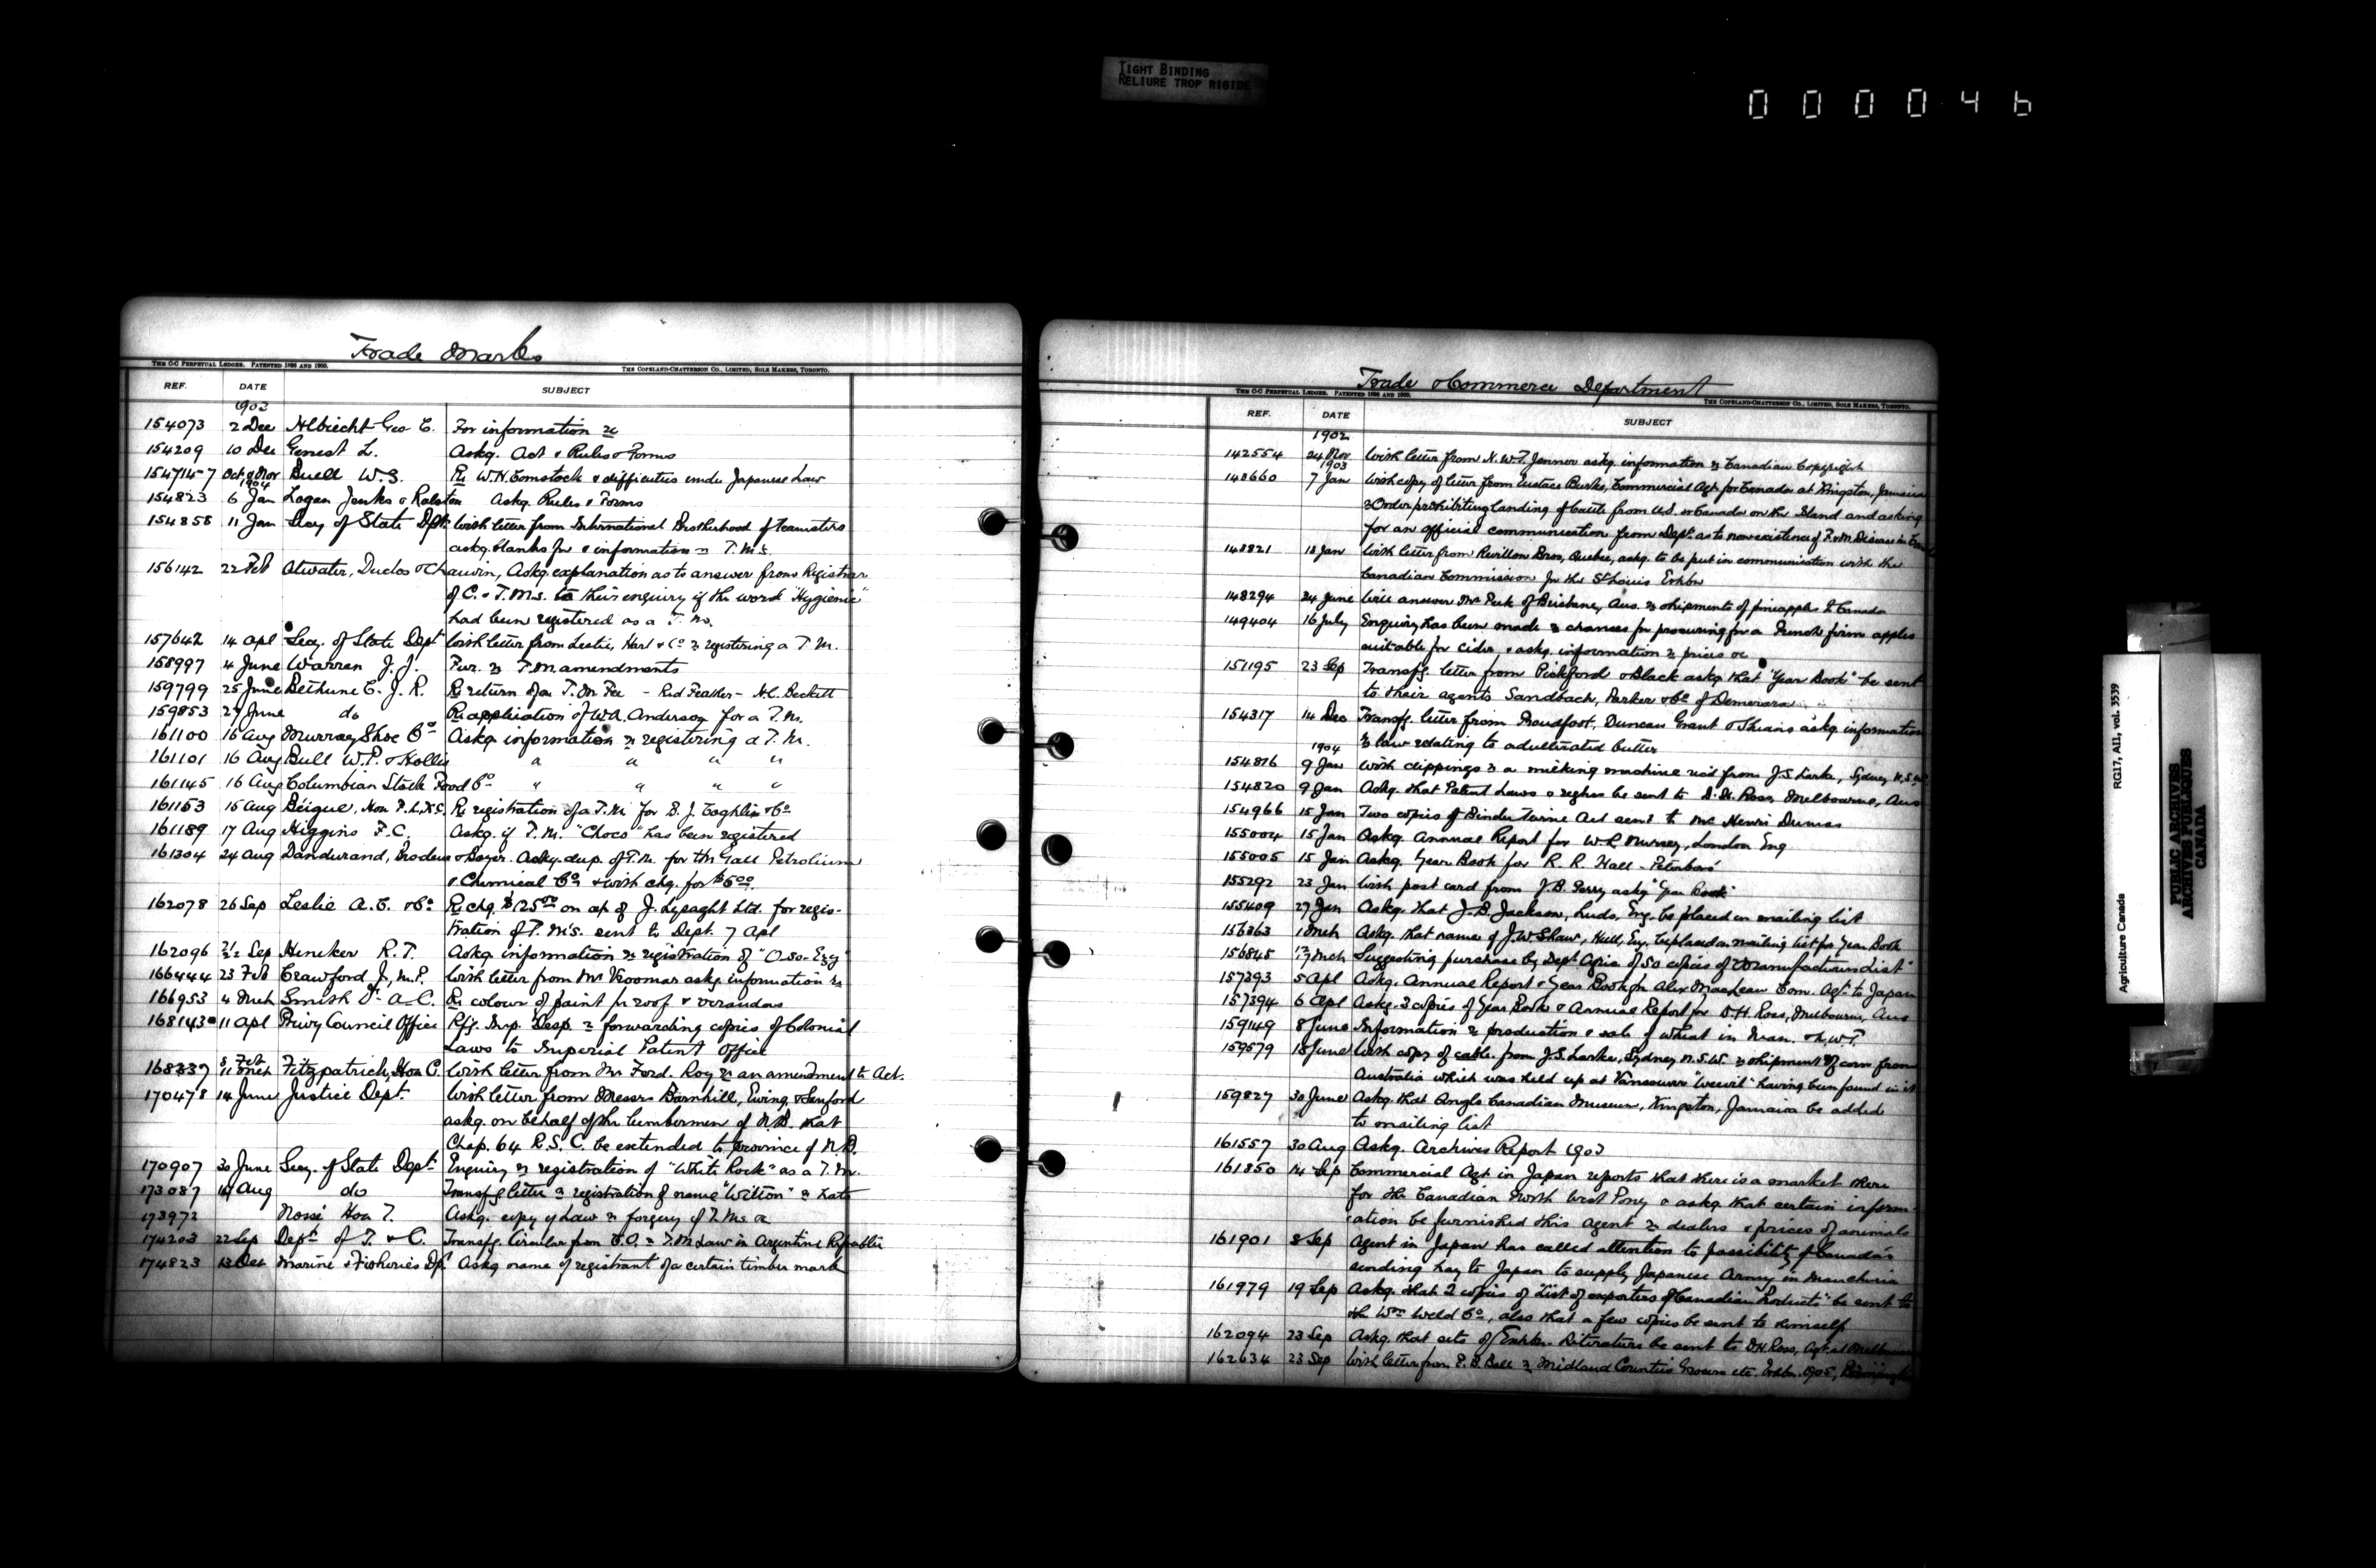 TIGHT BINDING
RELIURE TROP RIGIDE
000046
Trade Marks
THE C-C PERPETUAL LEDGER. PATENTED 1896 AND 1900. THE COPELAND-CHATTERSON CO., LIMITED, SOLE MAKERS, TORONTO.
REF. DATE SUBJECT
1903
154073 2 Dec Albrecht Geo C. For information re
154209 10 Dec Genest L. Askg. Act & Rules & Forms
Oct 9 Nov Buell W.S. Re W.H. Comstock & difficulties under Japanese Law
1904
154823 6 Jan Logan Jenks & Ralston Askg. Rules & Forms
154858 11 Jan Secy of State Dpt. With letter from International Brotherhood of Teamsters
askg. blanks for & information re T.M's.
156142 22 Feb Atwater, Duclos & Chauvin, Askg explanation as to answer from Registrar
of C. & T.M.s. to their enquiry if the word "Hygienic"
had been registered as a T.M.
157642 14 Apl Secy. of State Dept With letter from Leslie, Hart & Co re registering a T.M.
158997 4 June Warren J.J. Fur. re T.M amendments
159799 25 June Bethune C.J.R. Re return of a T.M. Fee - Red Feather - H.C. Beckett
159853 27 June do Re application of W.A. Anderson for a T.M.
161100 16 Aug Murray Shoe Co Askg information re registering a T.M.
161101 16 Aug Bull W.P. & Hollis " " " "
161145 16 Aug Columbian Stock Food Co " " " "
161153 15 Aug Béique, Hon F.L., K.C. Re registration of a T.M. for B.J. Coghlin & Co
161189 17 Aug Higgins F.C. Askg. if T.M. "Choco" has been registered
161304 24 Aug Dandurand, Brodeur & Boyer. Askg. dup. of T.M. for the Gall Petrolium
& Chemical Co & with chq. for $5.00
162078 26 Sep Leslie A.C. & Co. Re chq. $125.00 on a/c of J. Lysaght Ltd. for regis-
tration of T.M's. sent to Dept. 7 Apl
162096 Sep Heneker R.T. Askg. information re registration of "O-so-Ezy"
166444 23 Feb Crawford J, M.P. With letter from Mr Vrooman askg. information re
166953 4 Mch Smith Dr A.C. Re colour of paint for roof & verandas
168143 11 Apl Privy Council Office Rfg. Imp. Desp. re forwarding copies of Colonial
Laws to Imperial Patent Office
168339 8 Feb 11 Mch Fitzpatrick, Hon C. With letter from Mr Ford. Roy re an amendment to Act.
170478 14 June Justice Dept. With letter from Messrs Barnhill, Ewing & Sanford
askg. on behalf of the lumbermen of N.B. that
Chap. 64 R.S.C. be extended to province of N.B.
170907 30 June Secy. of State Dept. Enquiry re registration of "White Rock" as a T.M.
173087 19 Aug do Transfg letter re registration of name "Wilton" re hats
173972 Nossé Hon T. Askg. copy of Law re forgery of T.Ms. &c
174203 22 Sep Dept of T. & C. Transfg. Circular from C.O. re T.M Law in Argentine Republic
174823 13 Oct Marine & Fisheries Dpt. Askg name of registrant of a certain timber mark
Trade & Commerce Department
THE C-C PERPETUAL LEDGER. PATENTED 1896 AND 1900. THE COPELAND-CHATTERSON CO., LIMITED, SOLE MAKERS, TORONTO.
REF. DATE SUBJECT
1902
142554 24 Nov With letter from N.W.T. Jenner askg. information re Canadian Copyright
1903
143660 7 Jan With copy of letter from Eustace Burke, Commercial Agt for Canada at Kingston, Jamaica
re Order prohibiting landing of Cattle from U.S. or Canada on the Island and asking
for an official communication from Dept. as to nonexistence of F & M Disease in
143821 18 Jan With letter from Revillon Bros, Quebec, askg. to be put in communication with the
Canadian Commission for the St Louis Exhbn
148294 24 June Will answer Mr Peek of Brisbane, Aus. re shipments of pineapples to Canada
149404 16 July Enquiry has been made re chances for procuring for a French firm apples
suitable for cider, & askg. information re prices &c
151195 23 Sep Transfg. letter from Pickford & Black askg that "Year Book" be sent
to their agents Sandbach, Parker & Co of Demerara
154317 14 Dec Transfg. letter from Proudfoot, Duncan Grant & Skeans askg. information
re law relating to adulterated butter
1904
154816 9 Jan With clippings re a milking machine rec'd from J.S. Larke, Sydney N.S.W.
154820 9 Jan Askg. that Patent Laws & regns be sent to D.H. Ross, Melbourne, Aus
154966 15 Jan Two copies of Binder Twine Act sent to Mr Henri Dumas
155004 15 Jan Askg. Annual Report for W.R. Murray, London Eng
155005 15 Jan Askg. Year Book for R.R. Hall - Peterboro'
155292 23 Jan With post card from J.B. Perry askg "Year Book"
155409 27 Jan Askg. that J.B. Jackson, Leeds, Eng. be placed on mailing list
156363 1 Mch Askg. that name of J.W. Shaw, Hull, Eng. be placed on mailing list for Year Book
156845 17 Mch Suggesting purchase by Dept Agric. of 50 copies of "Manufacturers List"
157393 5 Apl Askg. Annual Report & Year Book for Alex MacLean Com. Agt. to Japan
157394 6 Apl Askg. 3 copies of Year Book & Annual Report for D.H. Ross, Melbourne, Aus
159149 8 June Information re production & sale of wheat in Man. & N.W.T.
159579 18 June With copy of cable from J.S. Larke, Sydney N.S.W. re shipment of corn from
Australia which was held up at Vancouver "weevil" having been found in it
159827 30 June Askg. that Anglo Canadian Museum, Kingston, Jamaica be added
to mailing list
161557 30 Aug Askg. Archives Report 1903
161850 14 Sep Commercial Agt. in Japan reports that there is a market there
for the Canadian North West Pony & askg. that certain inform-
ation be furnished this agent re dealers & prices of animals
161901 8 Sep Agent in Japan has called attention to possibility of Canada's
sending hay to Japan to supply Japanese Army in Manchuria
161979 19 Sep Askg. that 2 copies of "List of exporters of Canadian Products" be sent to
the Wm Weld Co, also that a few copies be sent to himself
162094 23 Sep Askg. that sets of Exhbn. Literature be sent to D.H. Ross, Agt. at Melbourne
162634 23 Sep With letter from P.B. Ball re Midland Counties Grocers etc. Exhbn. 1905,
Agriculture Canada RG17, AII, vol. 3539
PUBLIC ARCHIVES
ARCHIVES PUBLIQUES
CANADA